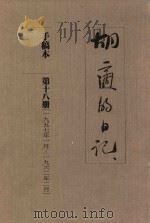 胡適的日記
手稿本
第十八册
一九五七年一月—一九六二年二月